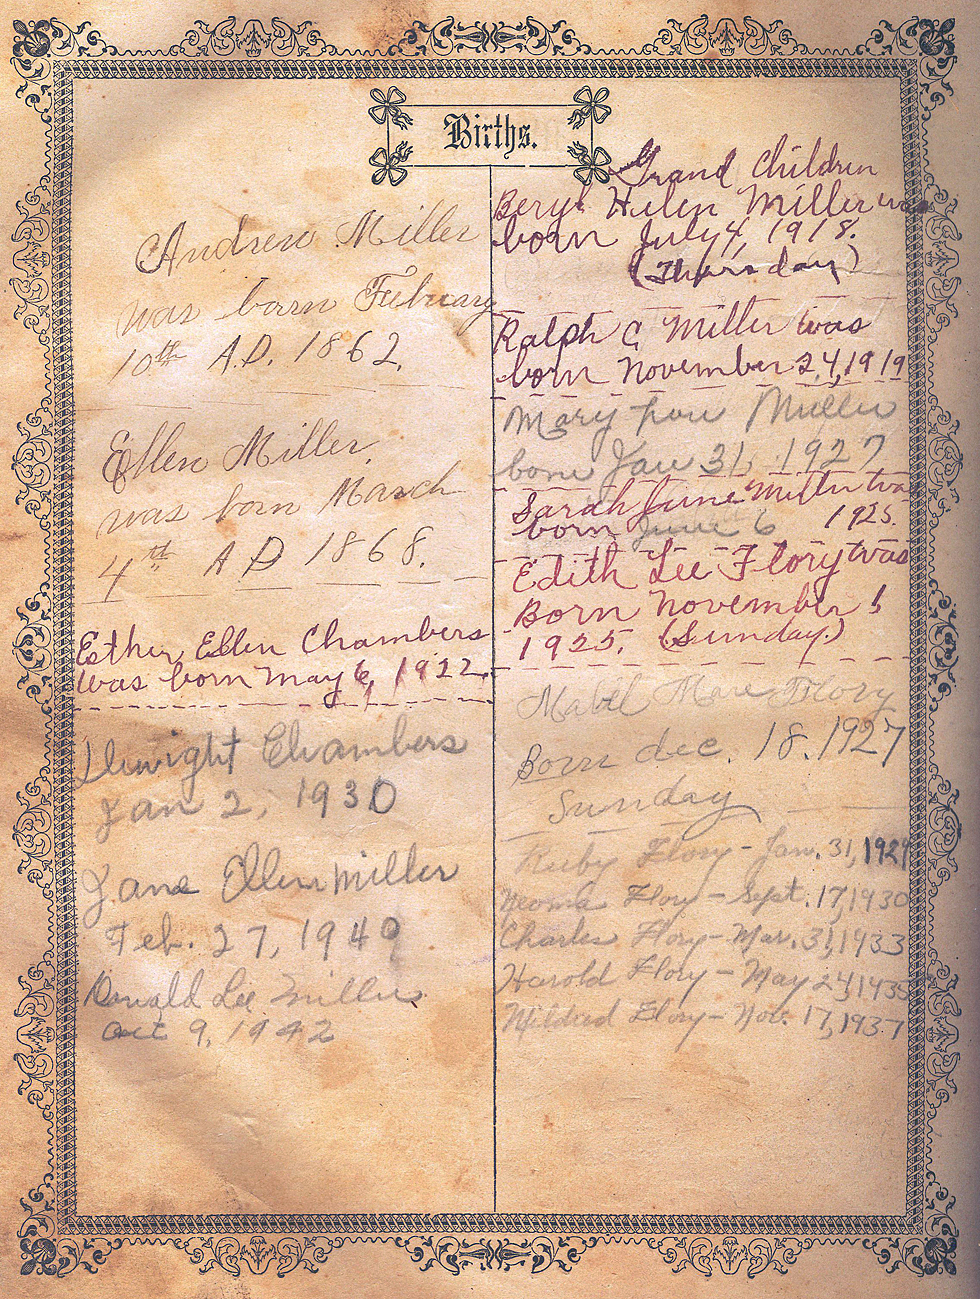 Births.
Andrew Miller
was born Febuary
10th A.D. 1862.
Ellen Miller.
was born March
4th A D 1868.
Esther Ellen Chambers
was born may 6, 1922.
Dwight Chambers
Jan 2, 1930
Jane Ellen Miller
Feb. 27, 1940
Donald Lee Miller
Oct 9, 1942
Grand Children
Beryl Helen Miller was
born July 4, 1918.
(Thursday)
Ralph C Miller was
born November 24, 1919
Mary Lou Miller
born Jan 31, 1927
Sarah June Miller was
born June 6 1925.
Edith Lee Flory was
Born November 1
1925. (Sunday.)
Mabel Mae Flory
Born dec. 18. 1927
Sunday
Ruby Flory - Jan. 31, 1929
Neoma Flory - Sept. 17, 1930
Charles Flory - Mar. 31, 1933
Harold Flory - May 24, 1935
Mildred Flory - Nov. 17, 1937